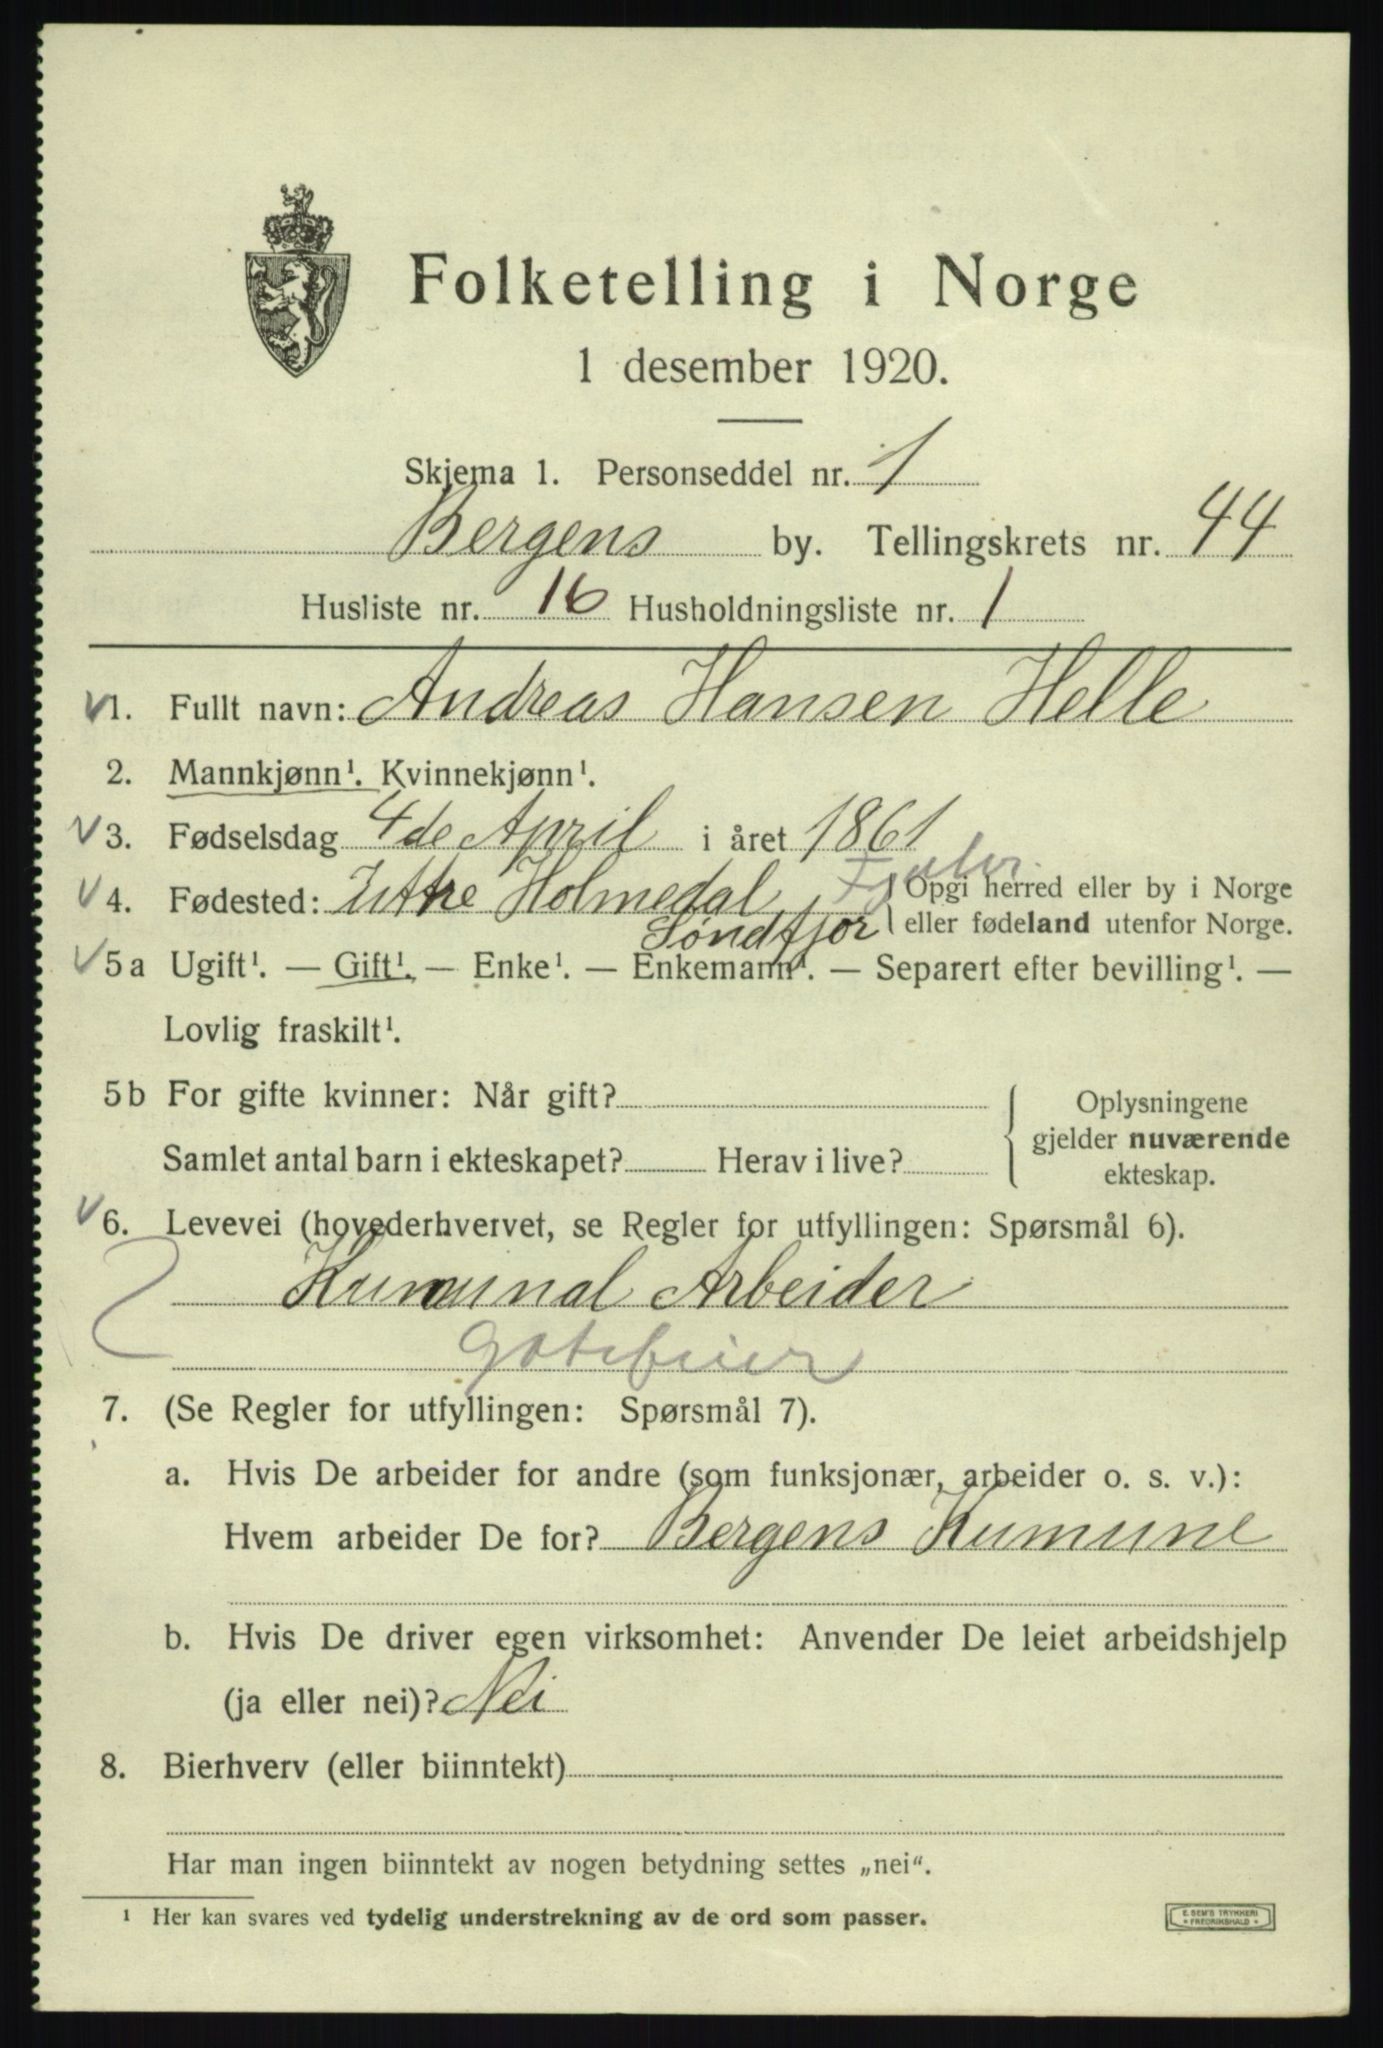 Folketelling i Norge
1 desember 1920.
Skjema 1. Personseddel nr. 1
Bergens by. Tellingskrets nr. 44
Husliste nr. 16 Husholdningsliste nr. 1
1. Fullt navn: Andreas Hansen Helle
2. Mannkjønn¹. Kvinnekjønn¹.
3. Fødselsdag 4de April i året 1861
Fjaler
4. Fødested: Ittre Holmedal Opgi herred eller by i Norge
Søndfjor eller fødeland utenfor Norge.
5a Ugift¹. — Gift¹. — Enke¹. — Enkemann¹. — Separert efter bevilling¹. —
Lovlig fraskilt¹.
5b For gifte kvinner: Når gift? Oplysningene
gjelder nuværende
Samlet antal barn i ekteskapet? Herav i live? ekteskap.
6. Levevei (hovederhvervet, se Regler for utfyllingen: Spørsmål 6).
Kumunal Arbeider
Gatefeier
7. (Se Regler for utfyllingen: Spørsmål 7).
a. Hvis De arbeider for andre (som funksjonær, arbeider o. s. v.):
Hvem arbeider De for? Bergens Kumune
b. Hvis De driver egen virksomhet: Anvender De leiet arbeidshjelp
(ja eller nei)? Nei
8. Bierhverv (eller biinntekt)
Har man ingen biinntekt av nogen betydning settes „nei“.
¹ Her kan svares ved tydelig understrekning av de ord som passer.
E. SEM'S TRYKKERI
FREDRIKSHALD